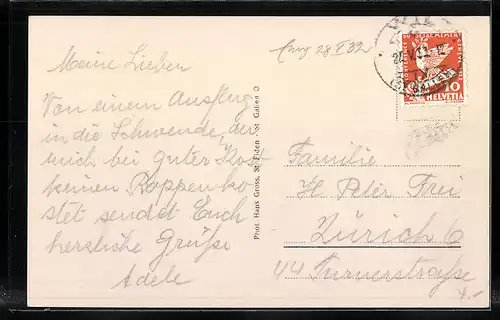 28 V 32
Meine Lieben
Von einem Ausflug
in die Schwende, der
mich bei guter Kost
keinen Rappen ko-
stet sendet Euch
herzliche Grüße
Adele
Phot. Hans Gross, St. Fiden - St Gallen O
HELVETIA
10
Familie
H. Peter Frei
Zürich 6
44 Turnerstraße
4.-